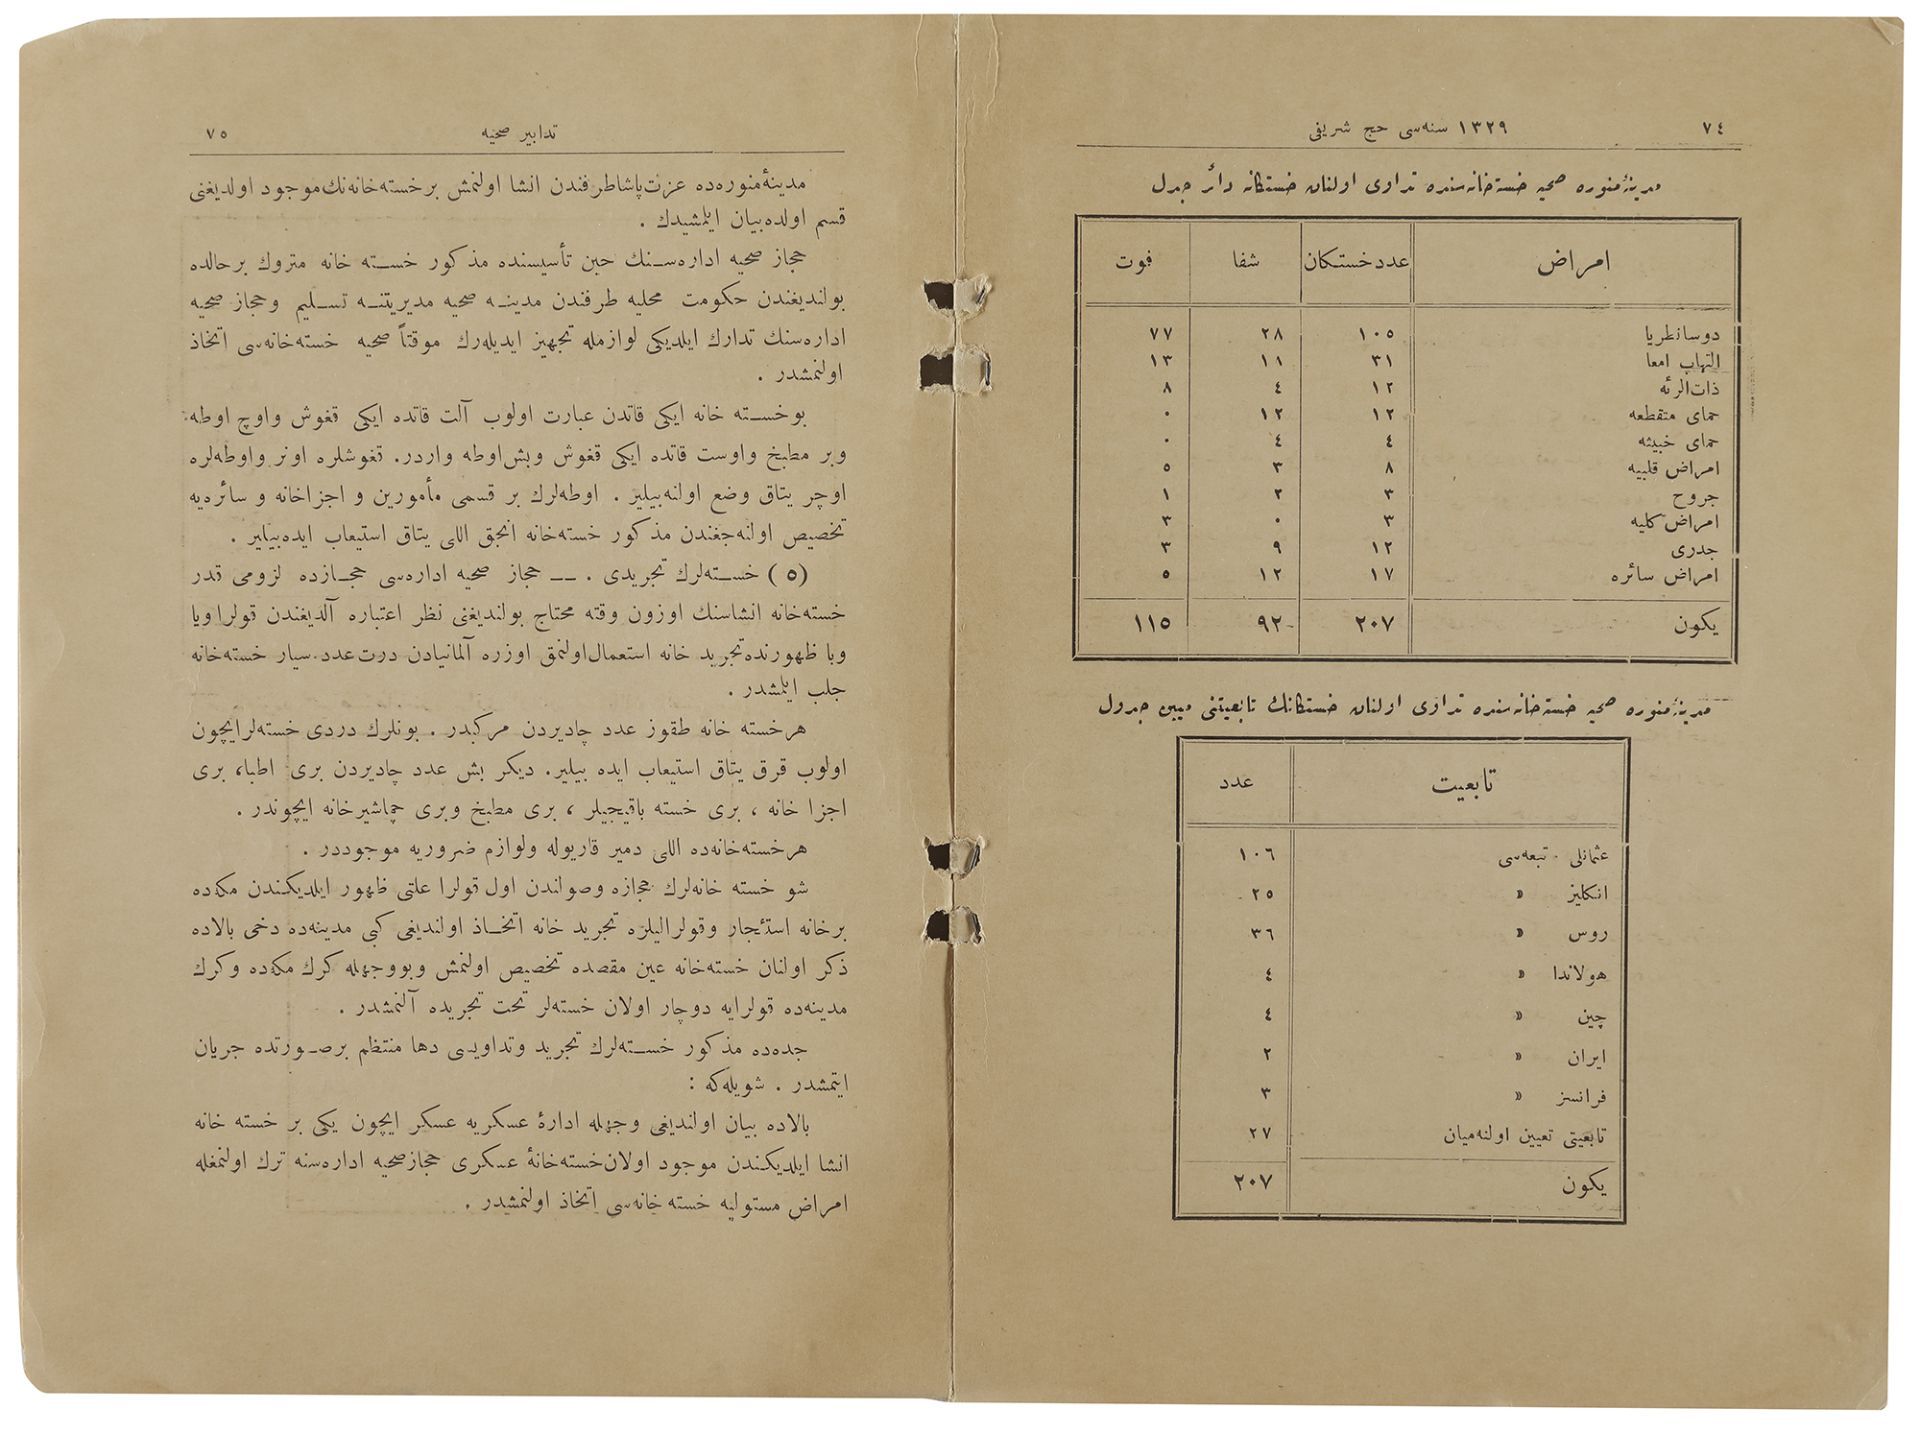 ٧٤
١٣٢٩ سنه‌سی حج شریفی
مدینهٔ منوره صحیه خسته‌خانه‌سنده تداوی اولنان خستکانه دائر جدول
امراض عددخستكان شفا فوت
دوسانطریا ١٠٥ ٢٨ ٧٧
التهاب امعا ٣١ ١٨ ١٣
ذات‌الرئه ١٢ ٤ ٨
حمای متقطعه ١٢ ١٢ ٠
حمای خبیثه ٤ ٤ ٠
امراض قلبیه ٨ ٣ ٥
جروح ٣ ٢ ١
امراض کلیه ٣ ٠ ٣
جدری ١٢ ٩ ٣
امراض سائره ١٧ ١٢ ٥
یکون ٢٠٧ ٩٢ ١١٥
مدینهٔ منوره صحیه خسته‌خانه‌سنده تداوی اولنان خستکانك تابعیتنی مبین جدول
تابعیت عدد
عثمانلی تبعه‌سی ١٠٦
انکلیز » ٢٥
روس » ٣٦
هولاندا » ٤
چین » ٤
ایران » ٢
فرانسز » ٣
تابعیتی تعیین اولنه‌میان ٢٧
یکون ٢٠٧
تدابیر صحیه
٧٥
مدینهٔ منوره‌ده عزت پاشا طرفندن انشا اولنمش بر خسته‌خانه‌نك موجود اولدیغنی
قسم اولده بیان ایلمشیدك .
حجاز صحیه اداره‌سنك حین تأسیسنده مذکور خسته خانه متروك بر حالده
بولندیغندن حکومت محلیه طرفندن مدینه صحیه مدیریتنه تسلیم وحجاز صحیه
اداره‌سنك تدارك ایلدیکی لوازمله تجهیز ایدیله‌رك موقتاً صحیه خسته‌خانه‌سی اتخاذ
اولنمشدر .
بو خسته خانه ایکی قاتدن عبارت اولوب آلت قاتده ایکی قغوش واوچ اوطه
وبر مطبخ واوست قاتده ایکی قغوش وبش اوطه واردر. قغوشلره اونر واوطه‌لره
اوچر یتاق وضع اولنه‌بیلیر . اوطه‌لرك بر قسمی مأمورین و اجزاخانه و سائره‌یه
تخصیص اولنه‌جغندن مذکور خسته‌خانه انجق اللی یتاق استیعاب ایده‌بیلیر .
( ٥ ) خسته‌لرك تجریدی . — حجاز صحیه اداره‌سی حجازده لزومی قدر
خسته‌خانه انشاسنك اوزون وقته محتاج بولندیغنی نظر اعتباره آلدیغندن قولرا ویا
وبا ظهورنده تجرید خانه استعمال اولنمق اوزره آلمانیادن درت عدد سیار خسته‌خانه
جلب ایلمشدر .
هر خسته خانه طقوز عدد چادیردن مرکبدر . بونلرك دردی خسته‌لر ایچون
اولوب قرق یتاق استیعاب ایده بیلیر. دیکر بش عدد چادیردن بری اطبا، بری
اجزا خانه ، بری خسته باقیجیلر ، بری مطبخ وبری چماشیرخانه ایچوندر .
هر خسته‌خانه‌ده اللی دمیر قاریوله ولوازم ضروریه موجوددر .
شو خسته خانه‌لرك حجازه وصولندن اول قولرا علتی ظهور ایلدیکندن مکه‌ده
بر خانه استئجار وقولرالیلره تجرید خانه اتخاذ اولندیغی کبی مدینه‌ده دخی بالاده
ذکر اولنان خسته‌خانه عین مقصده تخصیص اولنمش وبووجهله کرك مکه‌ده وکرك
مدینه‌ده قولرایه دوچار اولان خسته‌لر تحت تجریده آلنمشدر .
جده‌ده مذکور خسته‌لرك تجرید وتداویسی دها منتظم بر صورتده جریان
ایتمشدر . شویله‌که :
بالاده بیان اولندیغی وجهله ادارهٔ عسکریه عسکر ایچون یکی بر خسته خانه
انشا ایلدیکندن موجود اولان خسته‌خانهٔ عسکری حجاز صحیه اداره‌سنه ترك اولنمغله
امراض مستولیه خسته خانه‌سی اتخاذ اولنمشیدر .